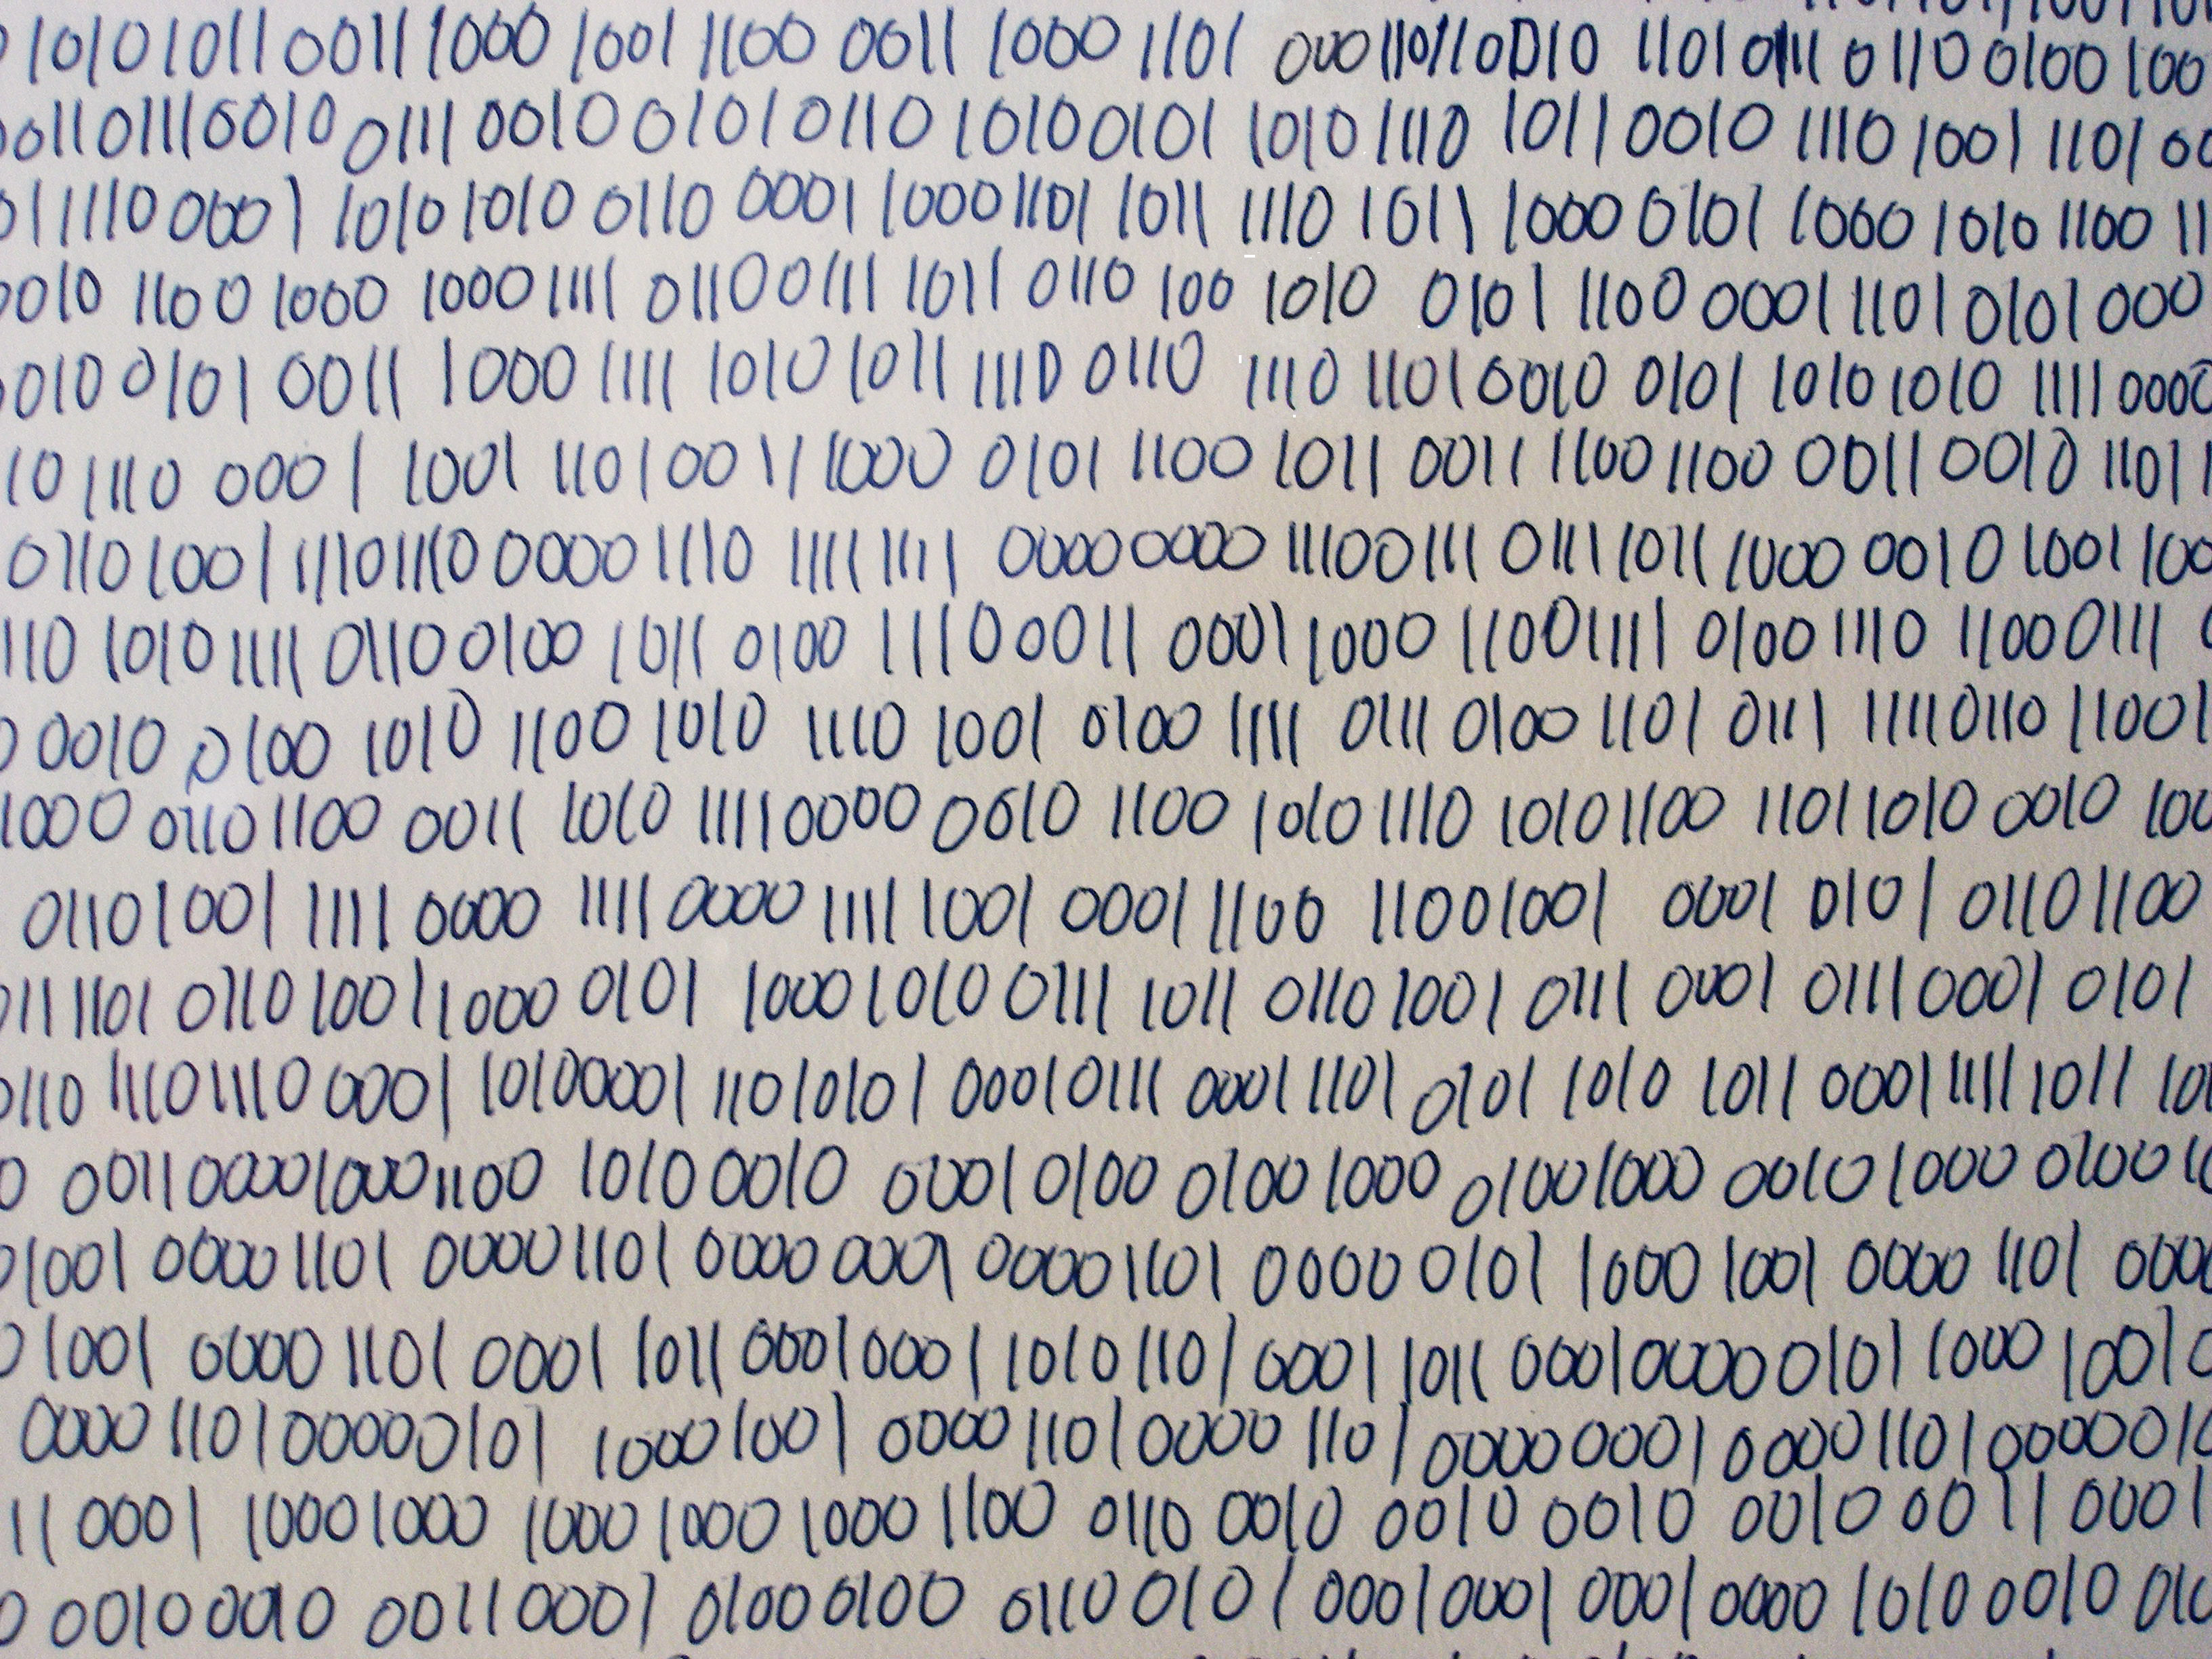 10101011 0011 1000 1001 1100 0011 1000 1101 000110110010 1101 0111 0110 0100 100
0011 0111 0010 0111 0010 0101 0110 1010 0101 1010 1110 1011 0010 1110 1001 1101 00
011110 0001 1010 1010 0110 0001 1000 1101 1011 1110 1011 1000 0101 1000 1010 1100 11
0010 1100 1000 1000 1111 0110 0111 1011 0110 100 1010 0101 1100 0001 1101 0101 000
0010 0101 0011 1000 1111 1010 1011 1110 0110 1110 1101 0010 0101 1010 1010 1111 0000
10 1110 0001 1001 1101 0011 1000 0101 1100 1011 0011 1100 1100 0011 0010 1101 1
0110 1001 1110 1110 0000 1110 1111 1111 0000 0000 1111 00111 0111 1011 1000 0010 1001 100
110 1010 1111 0110 0100 1011 0100 1111 00011 0001 1000 1100 1111 0100 1110 1100 0111
0 0010 0100 1010 1100 1010 1110 1001 0100 1111 0111 0100 1101 0111 1111 0110 11001
1000 0110 1100 0011 1010 1111 0000 0010 1100 1010 1110 1010 1100 1101 1010 0010 100
0110 1001 1111 0000 1111 0000 1111 1001 0001 1100 1100 1001 0001 0101 0110 1100
0111 1101 0110 1001 1000 0101 1000 1010 0111 1011 0110 1001 0111 0001 0111 0001 0101
0110 1110 1110 0001 1010 0001 1101 0101 0001 0111 0001 1101 0101 1010 1011 0001 1111 1011 10
0 0011 0000 1000 1100 1010 0010 0001 0100 0100 1000 0100 1000 0010 1000 0100 10
01001 0000 1101 0000 1101 0000 0001 0000 1101 0000 0101 1000 1001 0000 1101 0000
0 1001 0000 1101 0001 1011 0001 0001 1010 1101 0001 1011 0001 0000 0101 1000 1001 0
0000 1101 0000 0101 1000 1001 0000 1101 0000 1101 0000 0001 0000 1101 0000 010
11 0001 1000 1000 1000 1000 1000 1100 0110 0010 0010 0010 0010 0011 0001
0 0010 0010 0011 0001 0100 0100 0110 0101 0001 0001 0001 0000 1010 0010 010